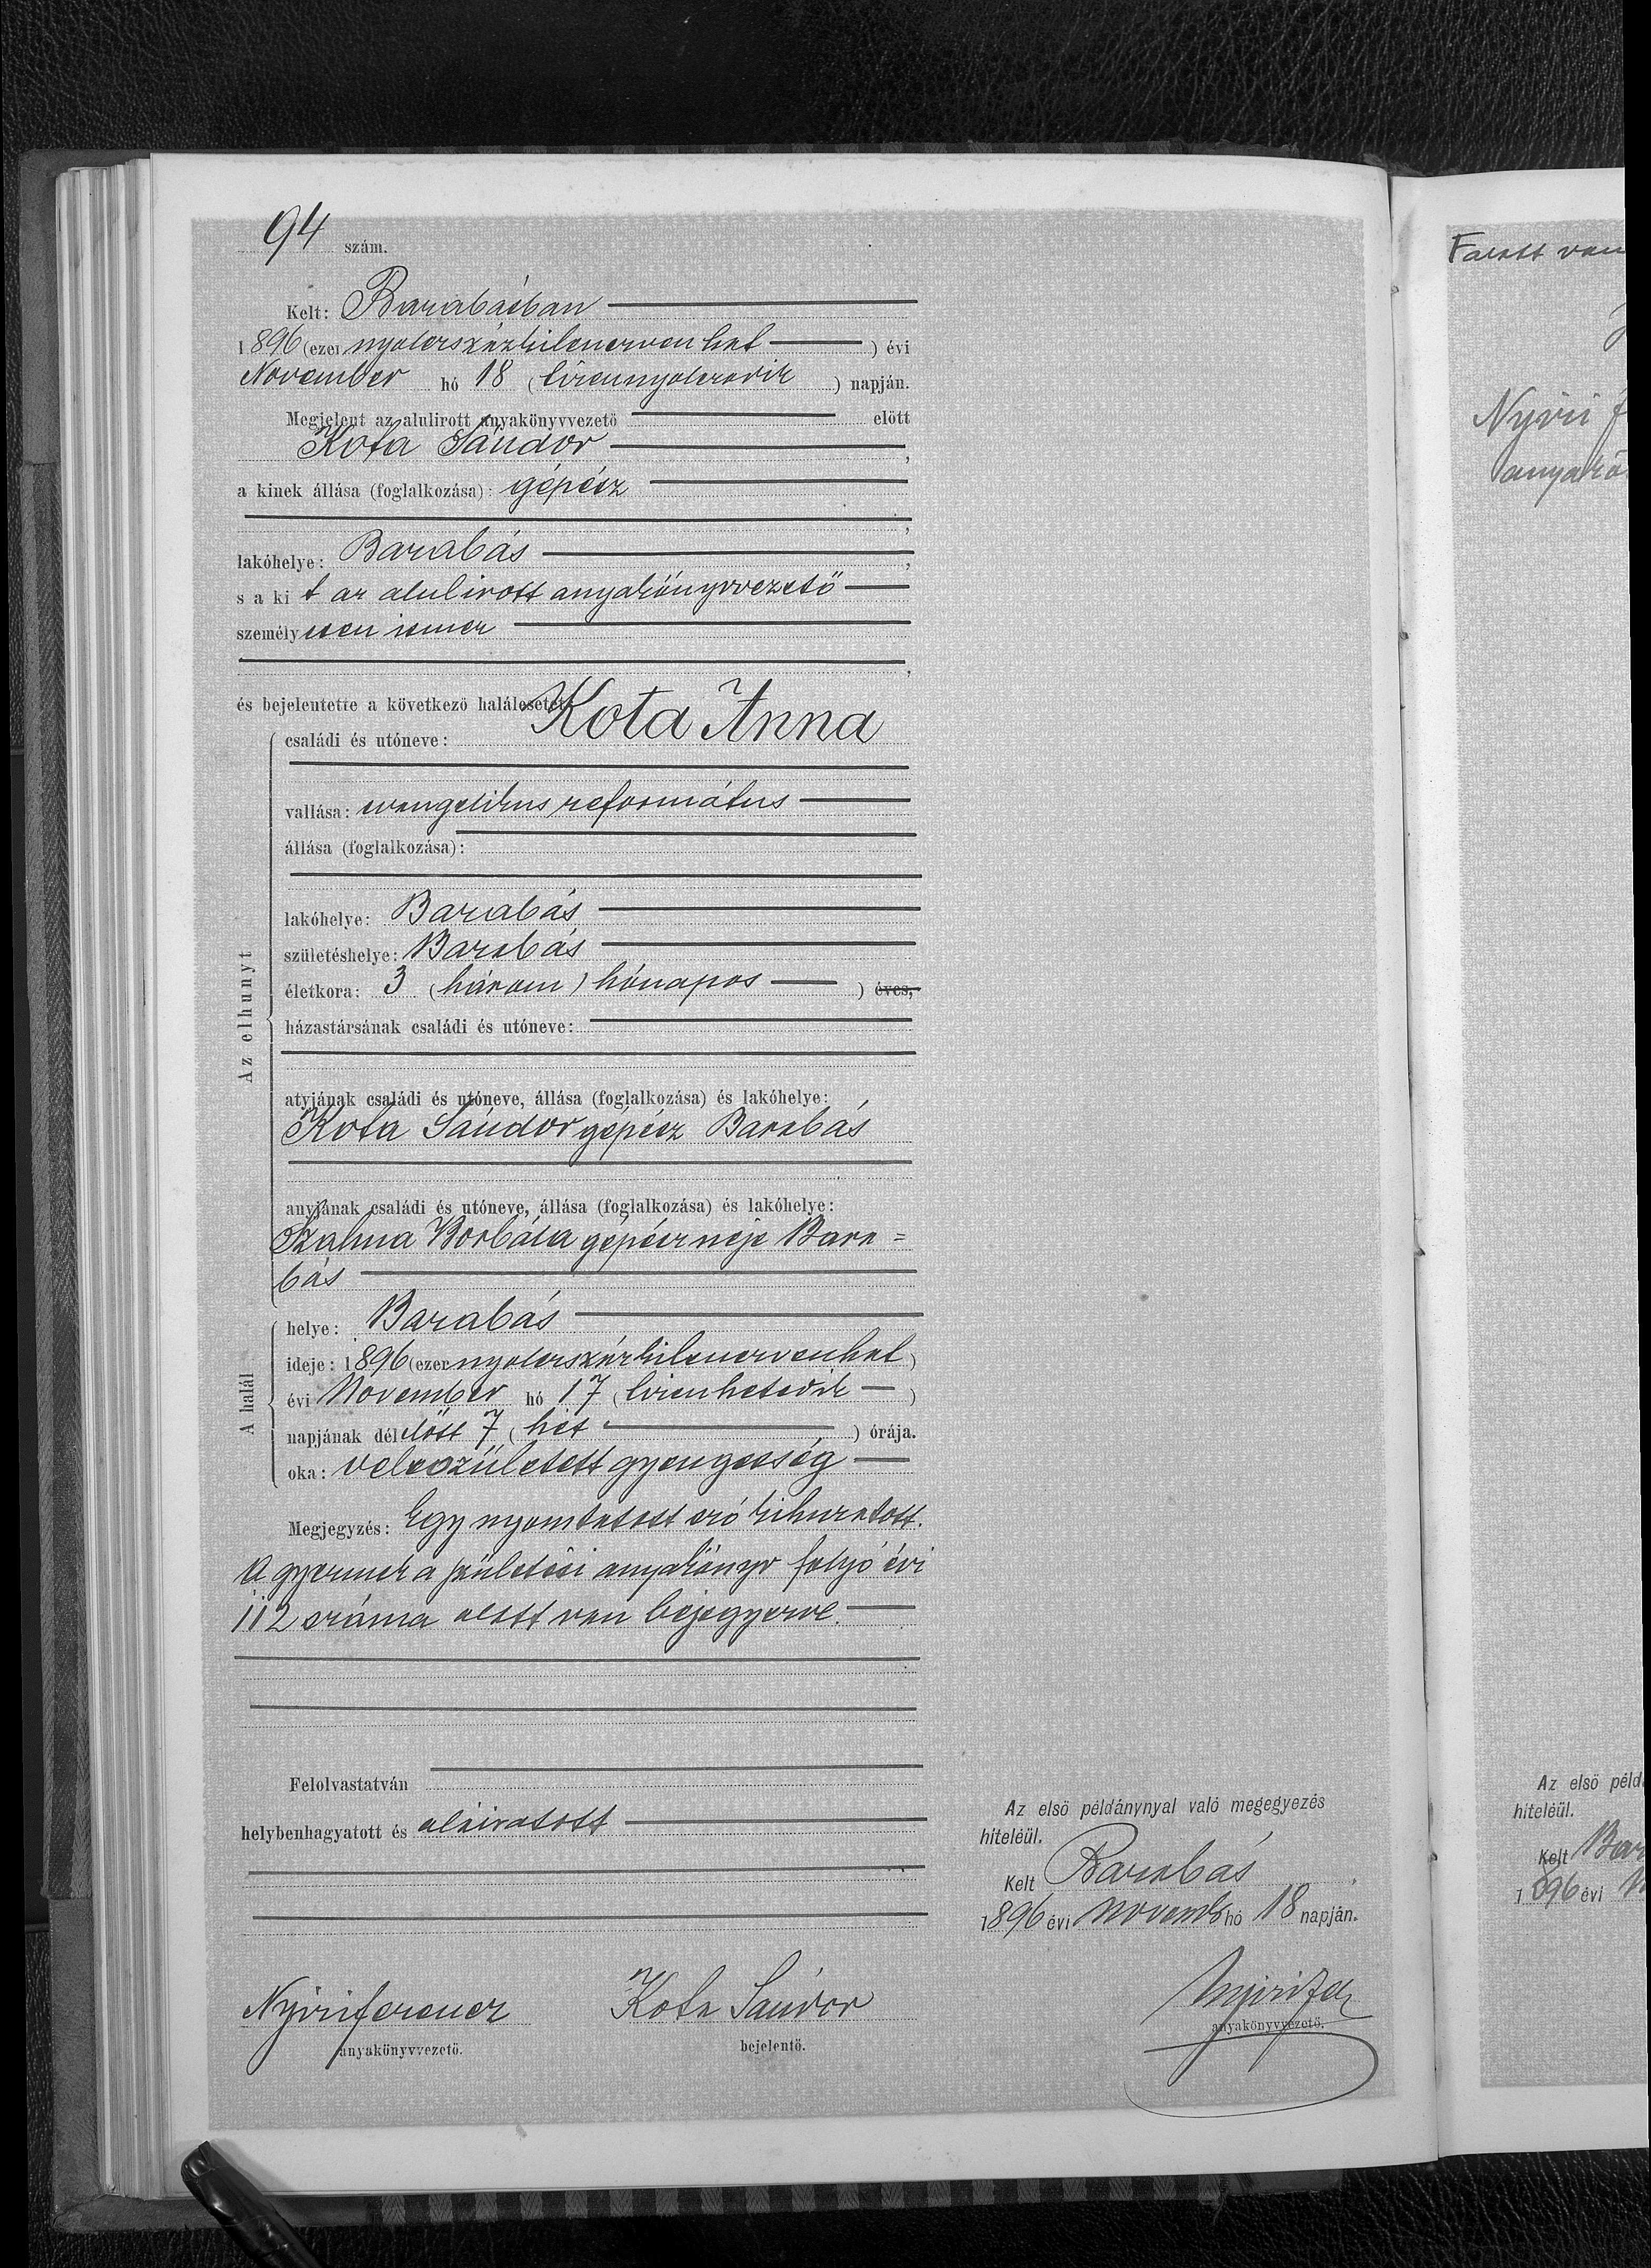 94 szám.
Kelt: Barabásban
1896 (ezer nyolcszázkilencvenhat) évi
November hó 18 (tizennyolcadik) napján.
Megjelent az alulirott anyakönyvvezető előtt
Kota Sándor,
a kinek állása (foglalkozása): gépész
lakóhelye: Barabás,
s a kit az alulirott anyakönyvvezető
személyesen ismer
és bejelentette a következő halálesetet:
családi és utóneve: Kota Anna
vallása: evangelikus református
állása (foglalkozása):
lakóhelye: Barabás
születéshelye: Barabás
életkora: 3 (három) hónapos ) éves,
házastársának családi és utóneve:
Az elhunyt
atyjának családi és utóneve, állása (foglalkozása) és lakóhelye:
Kota Sándor gépész Barabás
anyjának családi és utóneve, állása (foglalkozása) és lakóhelye:
Szalma Borbála gépész neje Bara=
bás
A halál
helye: Barabás
ideje: 1896 (ezer nyolcszázkilencvenhat)
évi November hó 17 (tizenhetedik)
napjának délelőtt 7 (hét) órája.
oka: veleszületett gyengeség
Megjegyzés: Egy nyomtatott szó kihuzatott.
A gyermek a születési anyakönyv folyó évi
112 száma alatt van bejegyezve.
Felolvastatván
helybenhagyatott és aláiratott
Nyiri Ferencz
anyakönyvvezető.
Kota Sándor
bejelentő.
Az első példánynyal való megegyezés
hiteléül.
Kelt Barabás
1896 évi Novemb hó 18 napján.
Nyiri Fer
anyakönyvvezető.
Nyiri
Az első péld
hiteléül.
Kelt Bar
1896 évi